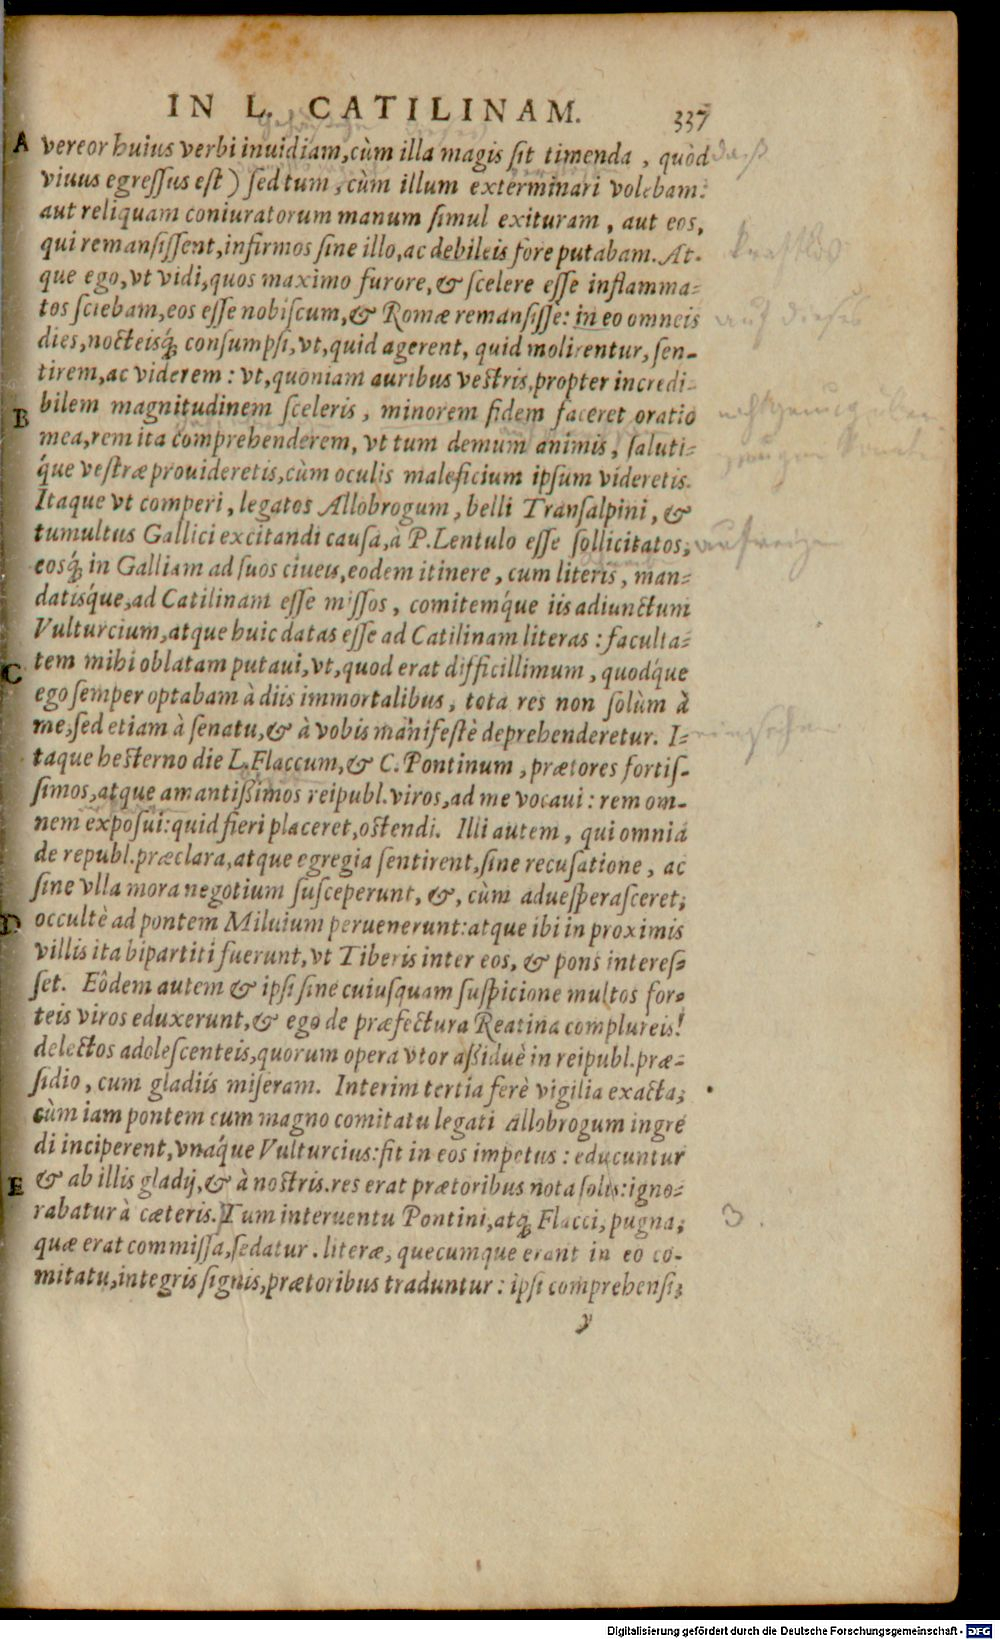 IN L. CATILINAM. 337
A vereor huius verbi inuidiam, cùm illa magis sit timenda, quòd daß
viuus egressus est) sed tum, cùm illum exterminari volebam:
aut reliquam coniuratorum manum simul exituram, aut eos,
qui remansissent, infirmos sine illo, ac debileis fore putabam. At- kraftlos
que ego, vt vidi, quos maximo furore, & scelere esse inflamma-
tos sciebam, eos esse nobiscum, & Romæ remansisse: in eo omneis auf dieses
dies, nocteisq́; consumpsi, vt, quid agerent, quid molirentur, sen-
tirem, ac viderem: vt, quoniam auribus vestris, propter incredi-
B bilem magnitudinem sceleris, minorem fidem faceret oratio
mea, rem ita comprehenderem, vt tum demum animis, saluti-
q́ue vestræ prouideretis, cùm oculis maleficium ipsum videretis.
Itaque vt comperi, legatos Allobrogum, belli Transalpini, &
tumultus Gallici excitandi causa, à P. Lentulo esse sollicitatos, aufreizen
eosq́; in Galliam ad suos ciueis, eodem itinere, cum literis, man-
datisq́ue, ad Catilinam esse missos, comitemq́ue iis adiunctum
Vulturcium, atque huic datas esse ad Catilinam literas: faculta-
C tem mihi oblatam putaui, vt, quod erat difficillimum, quodq́ue
ego semper optabam à diis immortalibus, tota res non solùm à
me, sed etiam à senatu, & à vobis manifestè deprehenderetur. I-
taque hesterno die L. Flaccum, & C. Pontinum, prætores fortis-
simos, atque amantißimos reipubl. viros, ad me vocaui: rem om-
nem exposui: quid fieri placeret, ostendi. Illi autem, qui omnia
de republ. præclara, atque egregia sentirent, sine recusatione, ac
sine vlla mora negotium susceperunt, &, cùm aduesperasceret,
D occultè ad pontem Miluium peruenerunt: atque ibi in proximis
villis ita bipartiti fuerunt, vt Tiberis inter eos, & pons interes-
set. Eôdem autem & ipsi sine cuiusquam suspicione multos for-
teis viros eduxerunt, & ego de præfectura Reatina complureis
delectos adolescenteis, quorum opera vtor aßiduè in reipubl. præ-
sidio, cum gladiis miseram. Interim tertia ferè vigilia exacta,
cùm iam pontem cum magno comitatu legati Allobrogum ingre
di inciperent, vnaq́ue Vulturcius: fit in eos impetus: educuntur
E & ab illis gladij, & à nostris. res erat prætoribus nota solis: igno-
rabatur à cæteris. Tum interuentu Pontini, atq; Flacci, pugna, 3.
quæ erat commissa, sedatur. literæ, quecumque erant in eo co-
mitatu, integris signis, prætoribus traduntur: ipsi comprehensi,
y
Digitalisierung gefördert durch die Deutsche Forschungsgemeinschaft - DFG